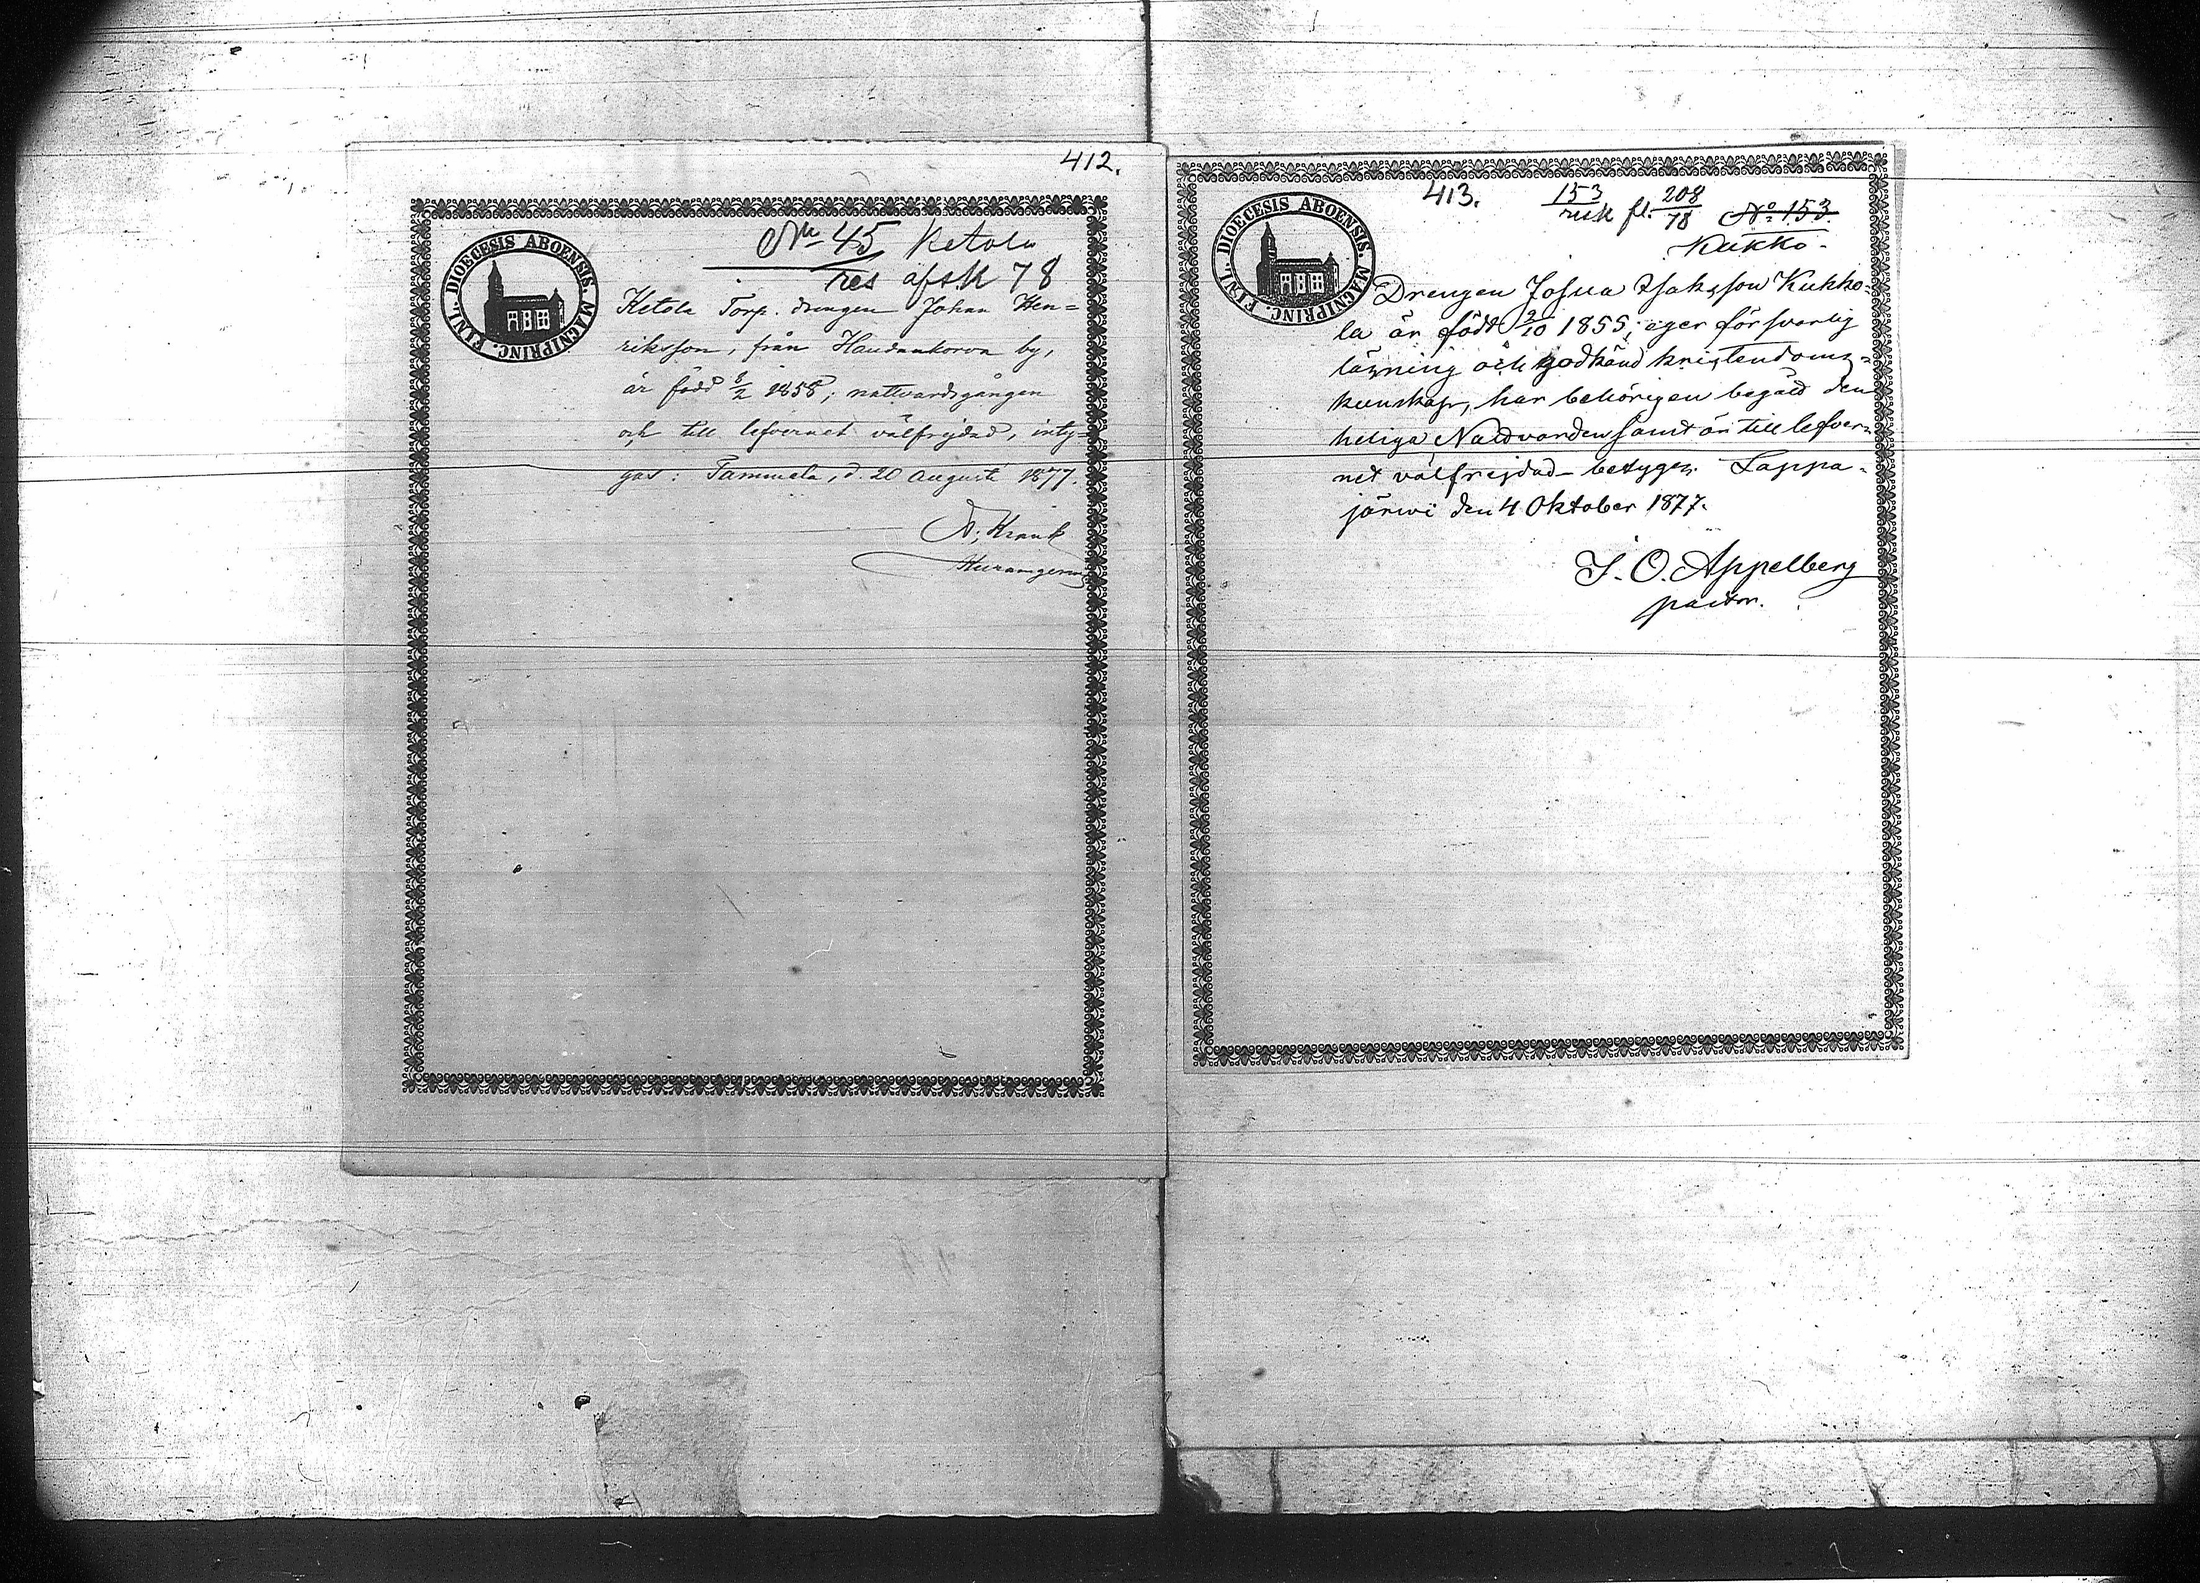 412.
FINL. DIOECESIS ABOENSIS. MAGNIPRINC.
No 45 Ketola
res afsk 78
Ketola Torp. drengen Johan Hen=
riksson, från Haudankorva by,
är född 8/2 1858; nattvardsgången
och till lefvernet välfrejdad, inty=
gas: Tammela, d. 20 Augusti 1877.
413. 153 rusk fl. 208/78 No 153
FINL. DIOECESIS ABOENSIS. MAGNIPRINC.
Kukko-
Drengen Josua Isaksson Kukko-
la är född 2/10 1855; eger försvarlig
läsning och godkänd kristendoms=
kunskap, har behörigen begått den
heliga Nattvarden samt är till lefver=
net välfrejdad- betygar. Lappa-
järwi den 4 Oktober 1877.
J. O. Appelberg
pastor.